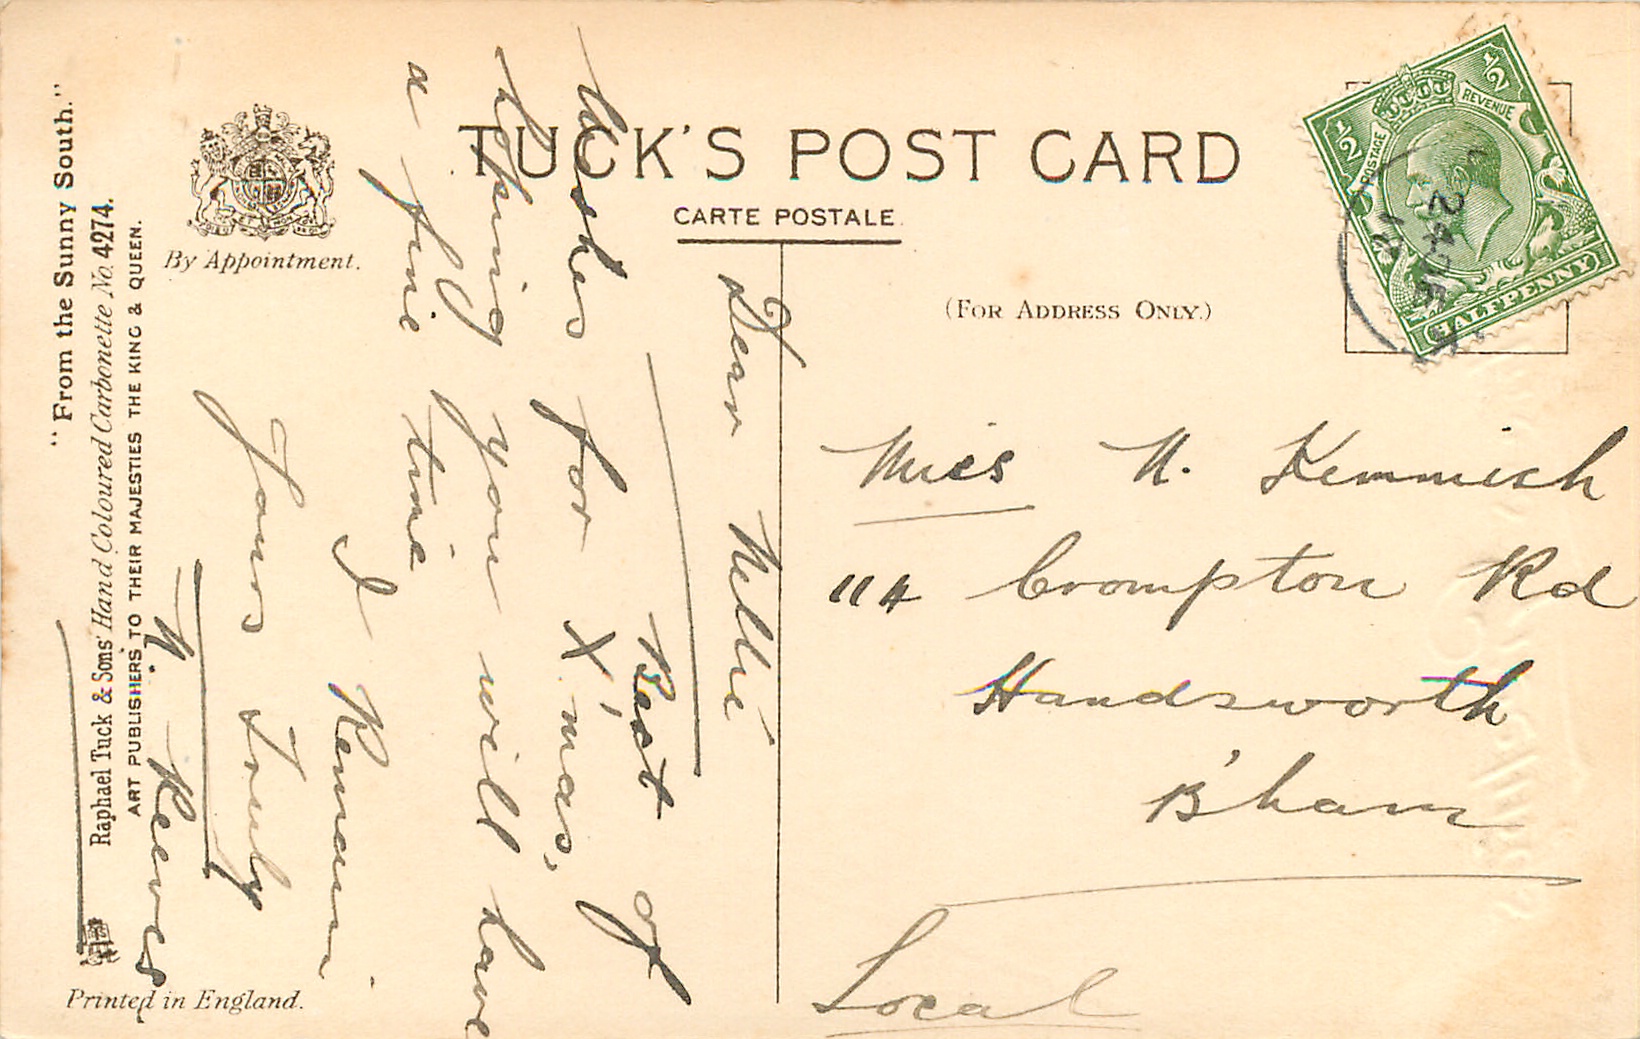 TUCK'S POST CARD
CARTE POSTALE.
(FOR ADDRESS ONLY.)
By Appointment.
"From the Sunny South."
Raphael Tuck & Sons' Hand Coloured Carbonette No. 4274.
ART PUBLISHERS TO THEIR MAJESTIES THE KING & QUEEN.
Printed in England.
Dear Nellie
Best of
wishes for X'mas,
hoping you will have
a fine time
I Remain
Yours Truly
N. Reeves
Miss N. Kemmish
114 Crompton Rd
Handsworth
B'ham
Local
1/2 1/2
POSTAGE REVENUE
HALFPENNY
24 DE
12